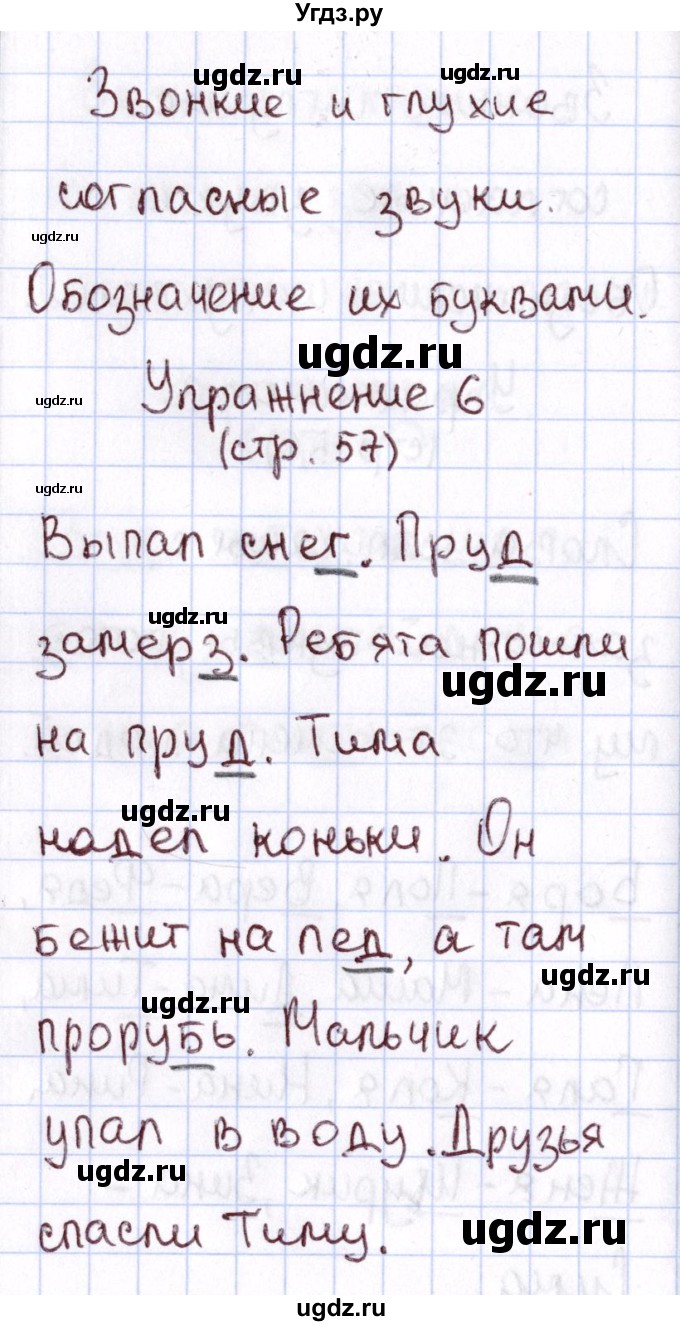 Угдз.ру
ugdz.ru ugdz.ru
Звонкие и глухие
согласные звуки.
ugdz.ru
Обозначение их буквами.
ugdz.ru
Упражнение 6
ugdz.ru
(стр. 57)
ugdz.ru
Выпал снег. Пруд
ugdz.ru
замерз. Ребята пошли
ugdz.ru
на пруд. Тима
ugdz.ru
надел коньки. Он
бежит на лед, а там
ugdz.ru
ugdz.ru
прорубь. Мальчик
упал в воду. Друзья
ugdz.ru
спасли Тиму.
ugdz.ru
ugdz.ru